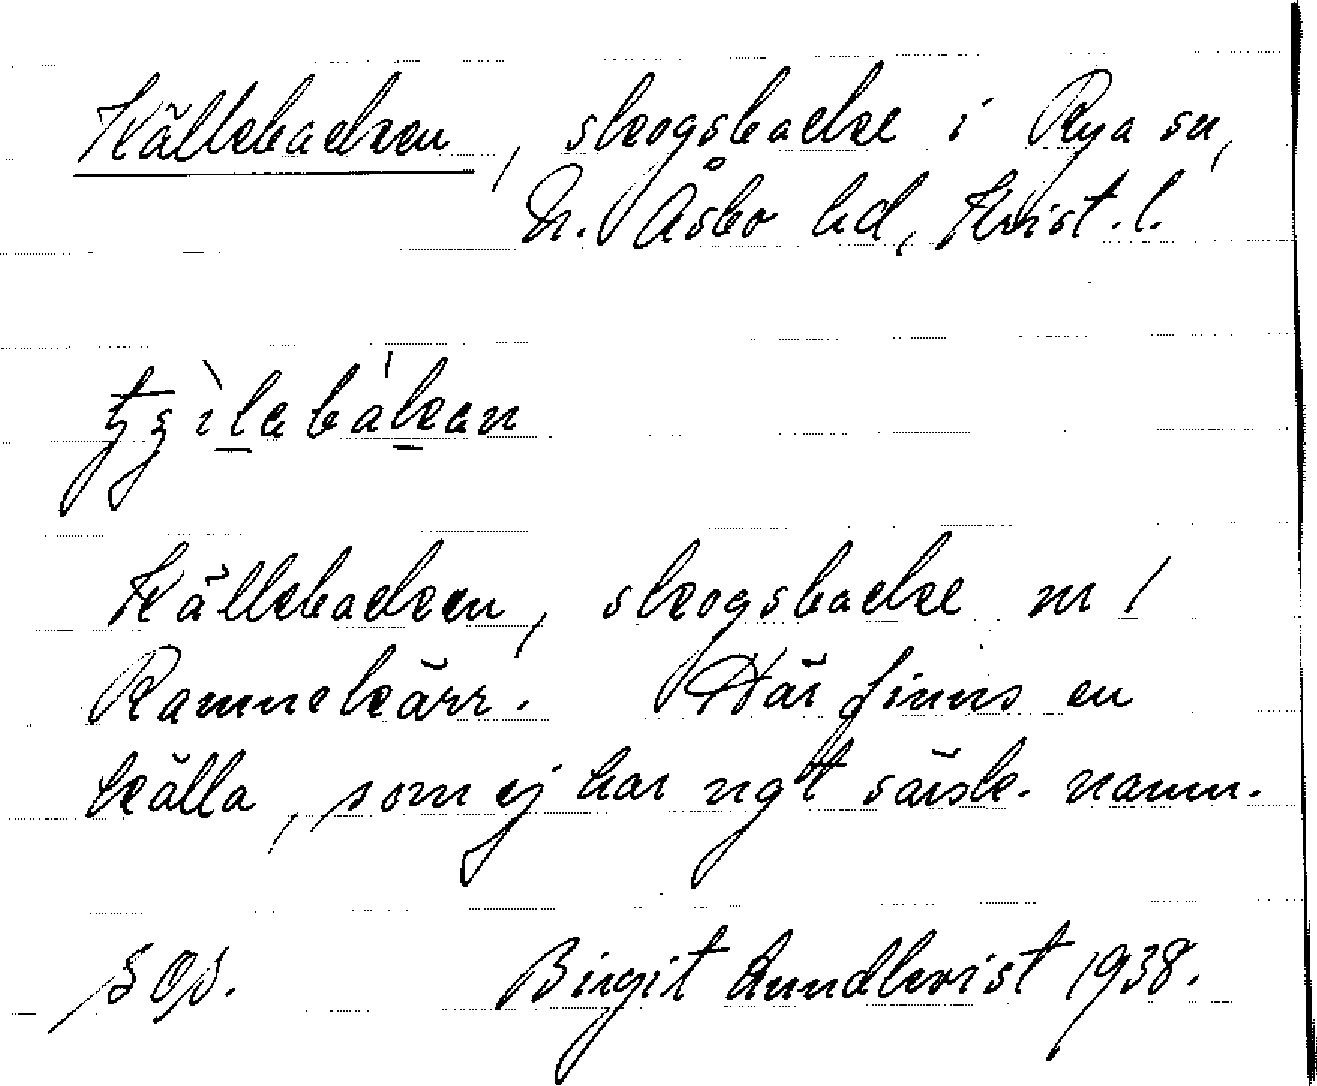 Källebacken, skogsbacke i Rya sn,
N. Åsbo hd, Krist. l.
Källebacken, skogsbacke nr 1
Ramnekärr. Där finns en
källa, som ej har ngt särsk. namn.
Birgit Lundkvist 1938.